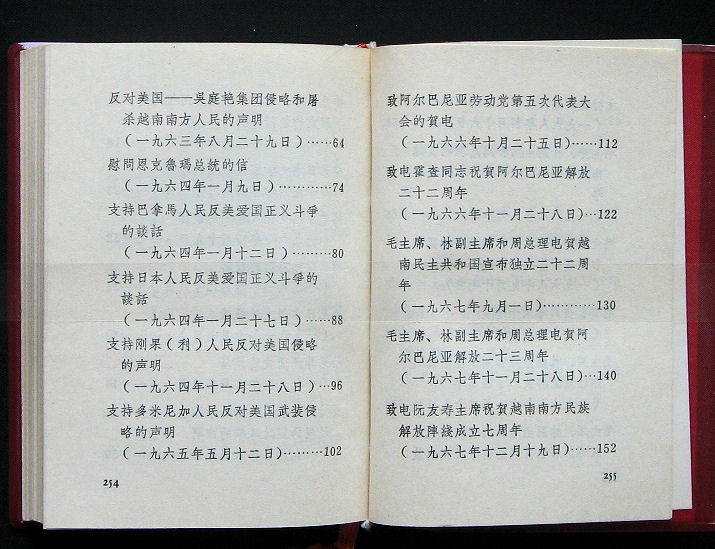 反对美国——吳庭艳集团侵略和屠
杀越南南方人民的声明
(一九六三年八月二十九日)……64
慰問恩克鲁瑪总統的信
(一九六四年一月九日)…………74
支持巴拿馬人民反美爱国正义斗爭
的談話
(一九六四年一月十二日)………80
支持日本人民反美爱国正义斗爭的
談話
(一九六四年一月二十七日)……88
支持刚果(利)人民反对美国侵略
的声明
(一九六四年十一月二十八日)…96
支持多米尼加人民反对美国武装侵
略的声明
(一九六五年五月十二日)………102
254
致阿尔巴尼亚劳动党第五次代表大
会的賀电
(一九六六年十月二十五日)……112
致电霍查同志祝賀阿尔巴尼亚解放
二十二周年
(一九六六年十一月二十八日)…122
毛主席、林副主席和周总理电贺越
南民主共和国宣布独立二十二周
年
(一九六七年九月一日)…………130
毛主席、林副主席和周总理电賀阿
尔巴尼亚解放二十三周年
(一九六七年十一月二十八日)…140
致电阮友寿主席祝賀越南南方民族
解放陣綫成立七周年
(一九六七年十二月十九日)……152
255